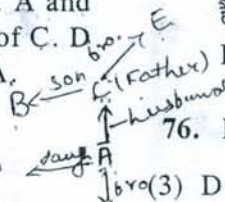 A and
of C. D bro. E
A.
B son C (Father)
husband
76.
daug A
bro (3) D